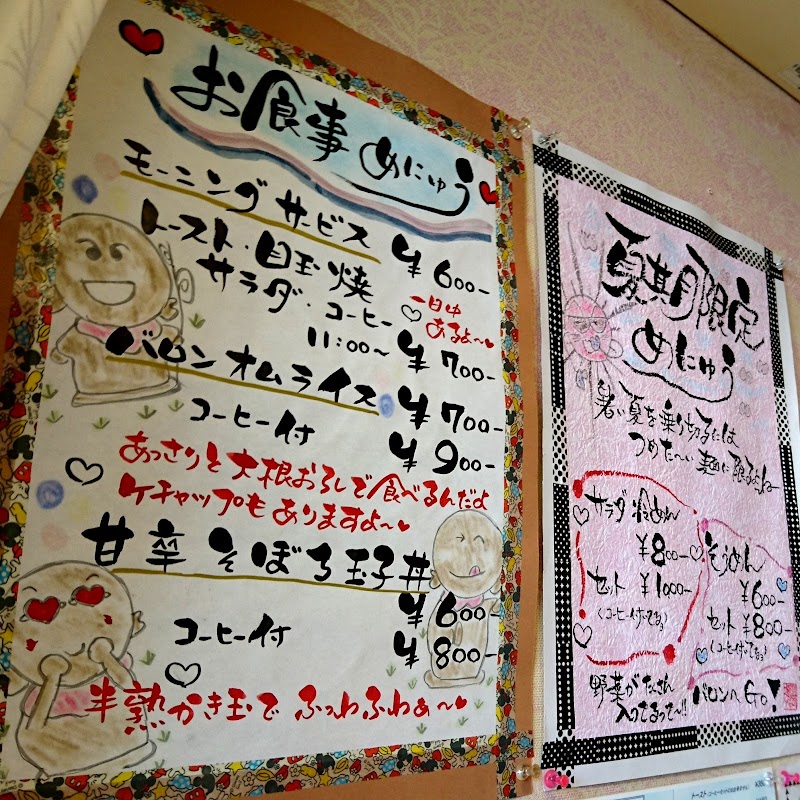 お食事めにゅう
モーニングサービス ¥600-
トースト・目玉焼
サラダ・コーヒー
一日中
あるよ〜
11:00〜 ¥700-
バロンオムライス ¥700-
コーヒー付 ¥900-
あっさりと大根おろしで食べるんだよ
ケチャップもありますよ〜
甘辛そぼろ玉子丼
¥600-
コーヒー付 ¥800-
半熟かき玉でふっわふわぁ〜
夏期限定
めにゅう
暑い夏を乗り切るには
つめた〜い麺に限るよね
サラダ冷めん
¥800-
セット ¥1000-
(コーヒー付いてるョ)
そうめん
¥600-
セット ¥800-
(コーヒー付いてるョ)
野菜がたくさん
入ってるって〜!!
バロンへGO!